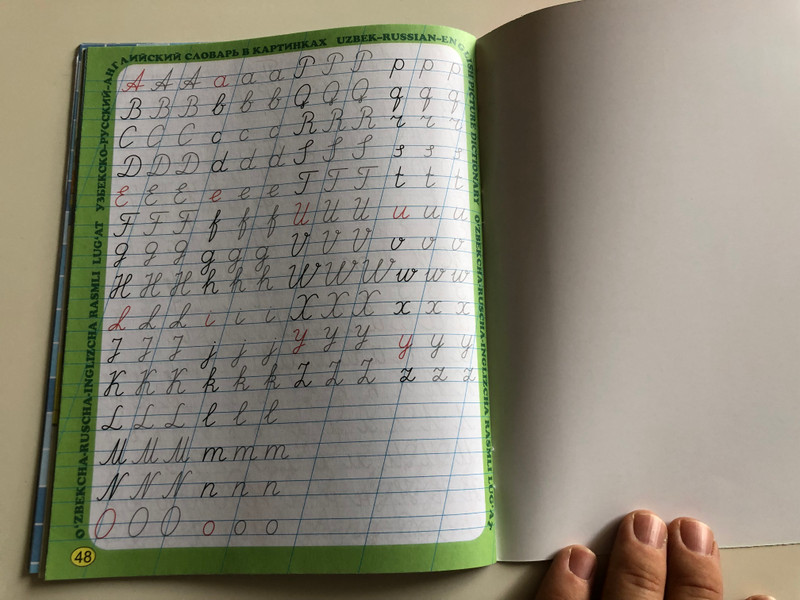 УЗБЕКСКО-РУССКИЙ-АНГЛИЙСКИЙ СЛОВАРЬ В КАРТИНКАХ UZBEK–RUSSIAN–ENGLISH PICTURE DICTIONARY O'ZBEKCHA-RUSCHA-INGLIZCHA RASMLI LUG'AT
O'ZBEKCHA-RUSCHA-INGLIZCHA RASMLI LUG'AT
A A A a a a P P P p p p
B B B b b b Q Q Q q q q
C C C c c c R R R r r r
D D D d d d S S S s s s
E E E e e e T T T t t t
F F F f f f U U U u u u
g g g g g g V V V v v v
H H H h h h W W W w w w
I I I i i i X X X x x x
J J J j j j Y Y Y y y y
K K K k k k Z Z Z z z z
L L L l l l
M M M m m m
N N N n n n
O O O o o o
48